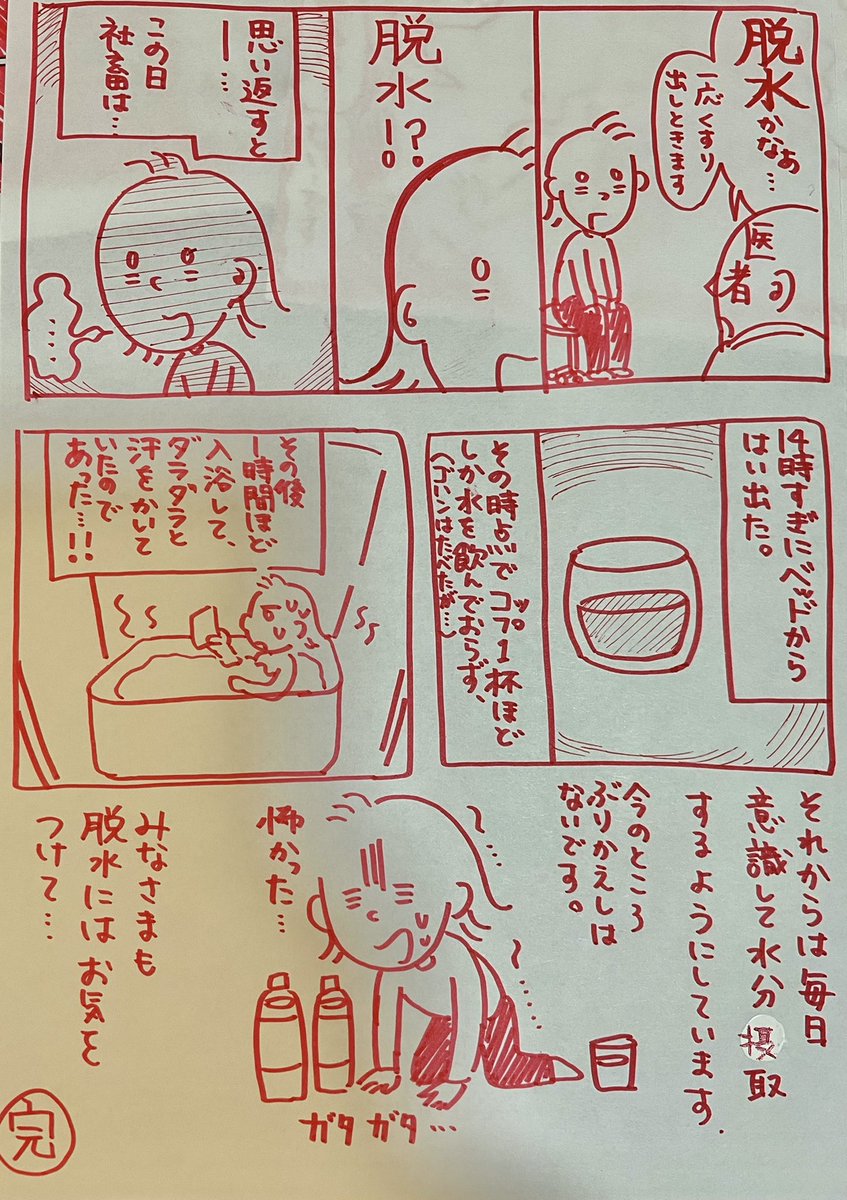 脱水かなぁ…
一応くすり
出しときます
医者
脱水!?
思い返すと
ー…
この日
社畜は…
……
14時すぎにベッドから
はい出た。
その時点でコップ1杯ほど
しか水を飲んでおらず、
(ゴハンはたべたが…)
その後
1時間ほど
入浴して、
ダラダラと
汗をかいて
いたので
あった…!!
それからは毎日
意識して水分摂取
するようにしています.
今のところ
ぶりかえしは
ないです。
怖かった…
ガタガタ…
みなさまも
脱水にはお気を
つけて…
完